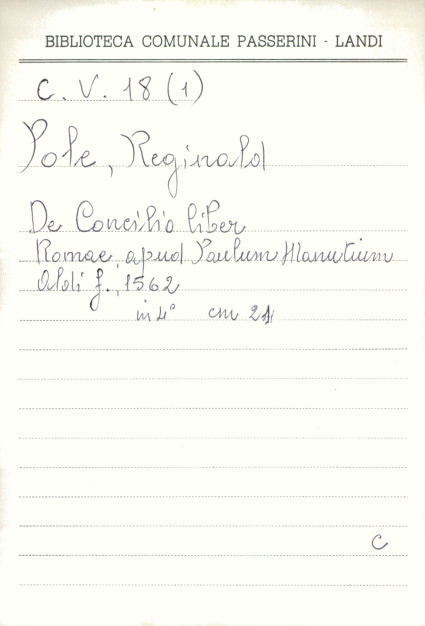 BIBLIOTECA COMUNALE PASSERINI - LANDI
C. V. 18 (1)
Pole, Reginald
De Concilio liber
Romae, apud Paulum Manutium
Aldi f., 1562
in 4° cm 21
C